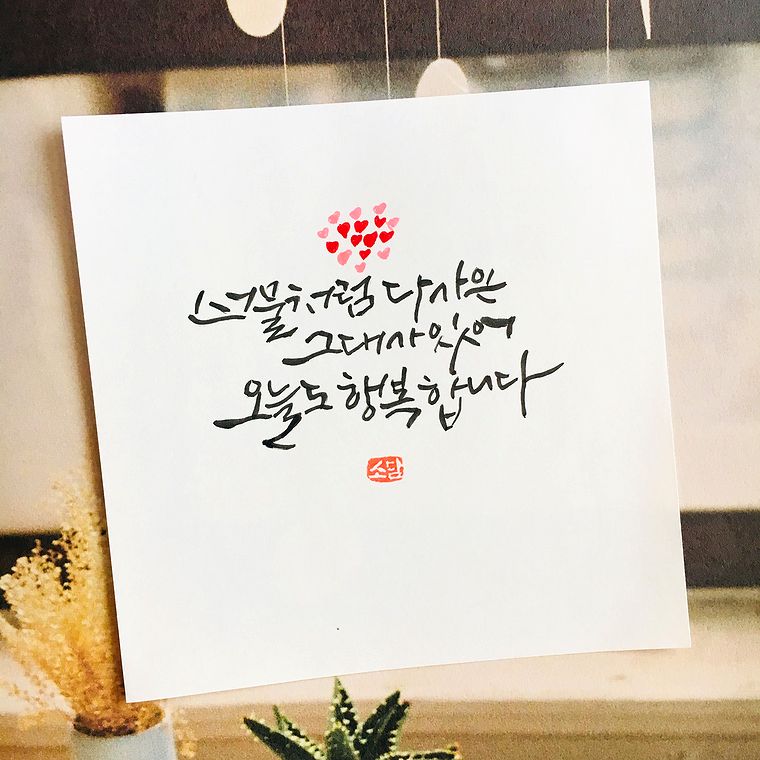 선물처럼 다가온
그대가 있어
오늘도 행복합니다
소담